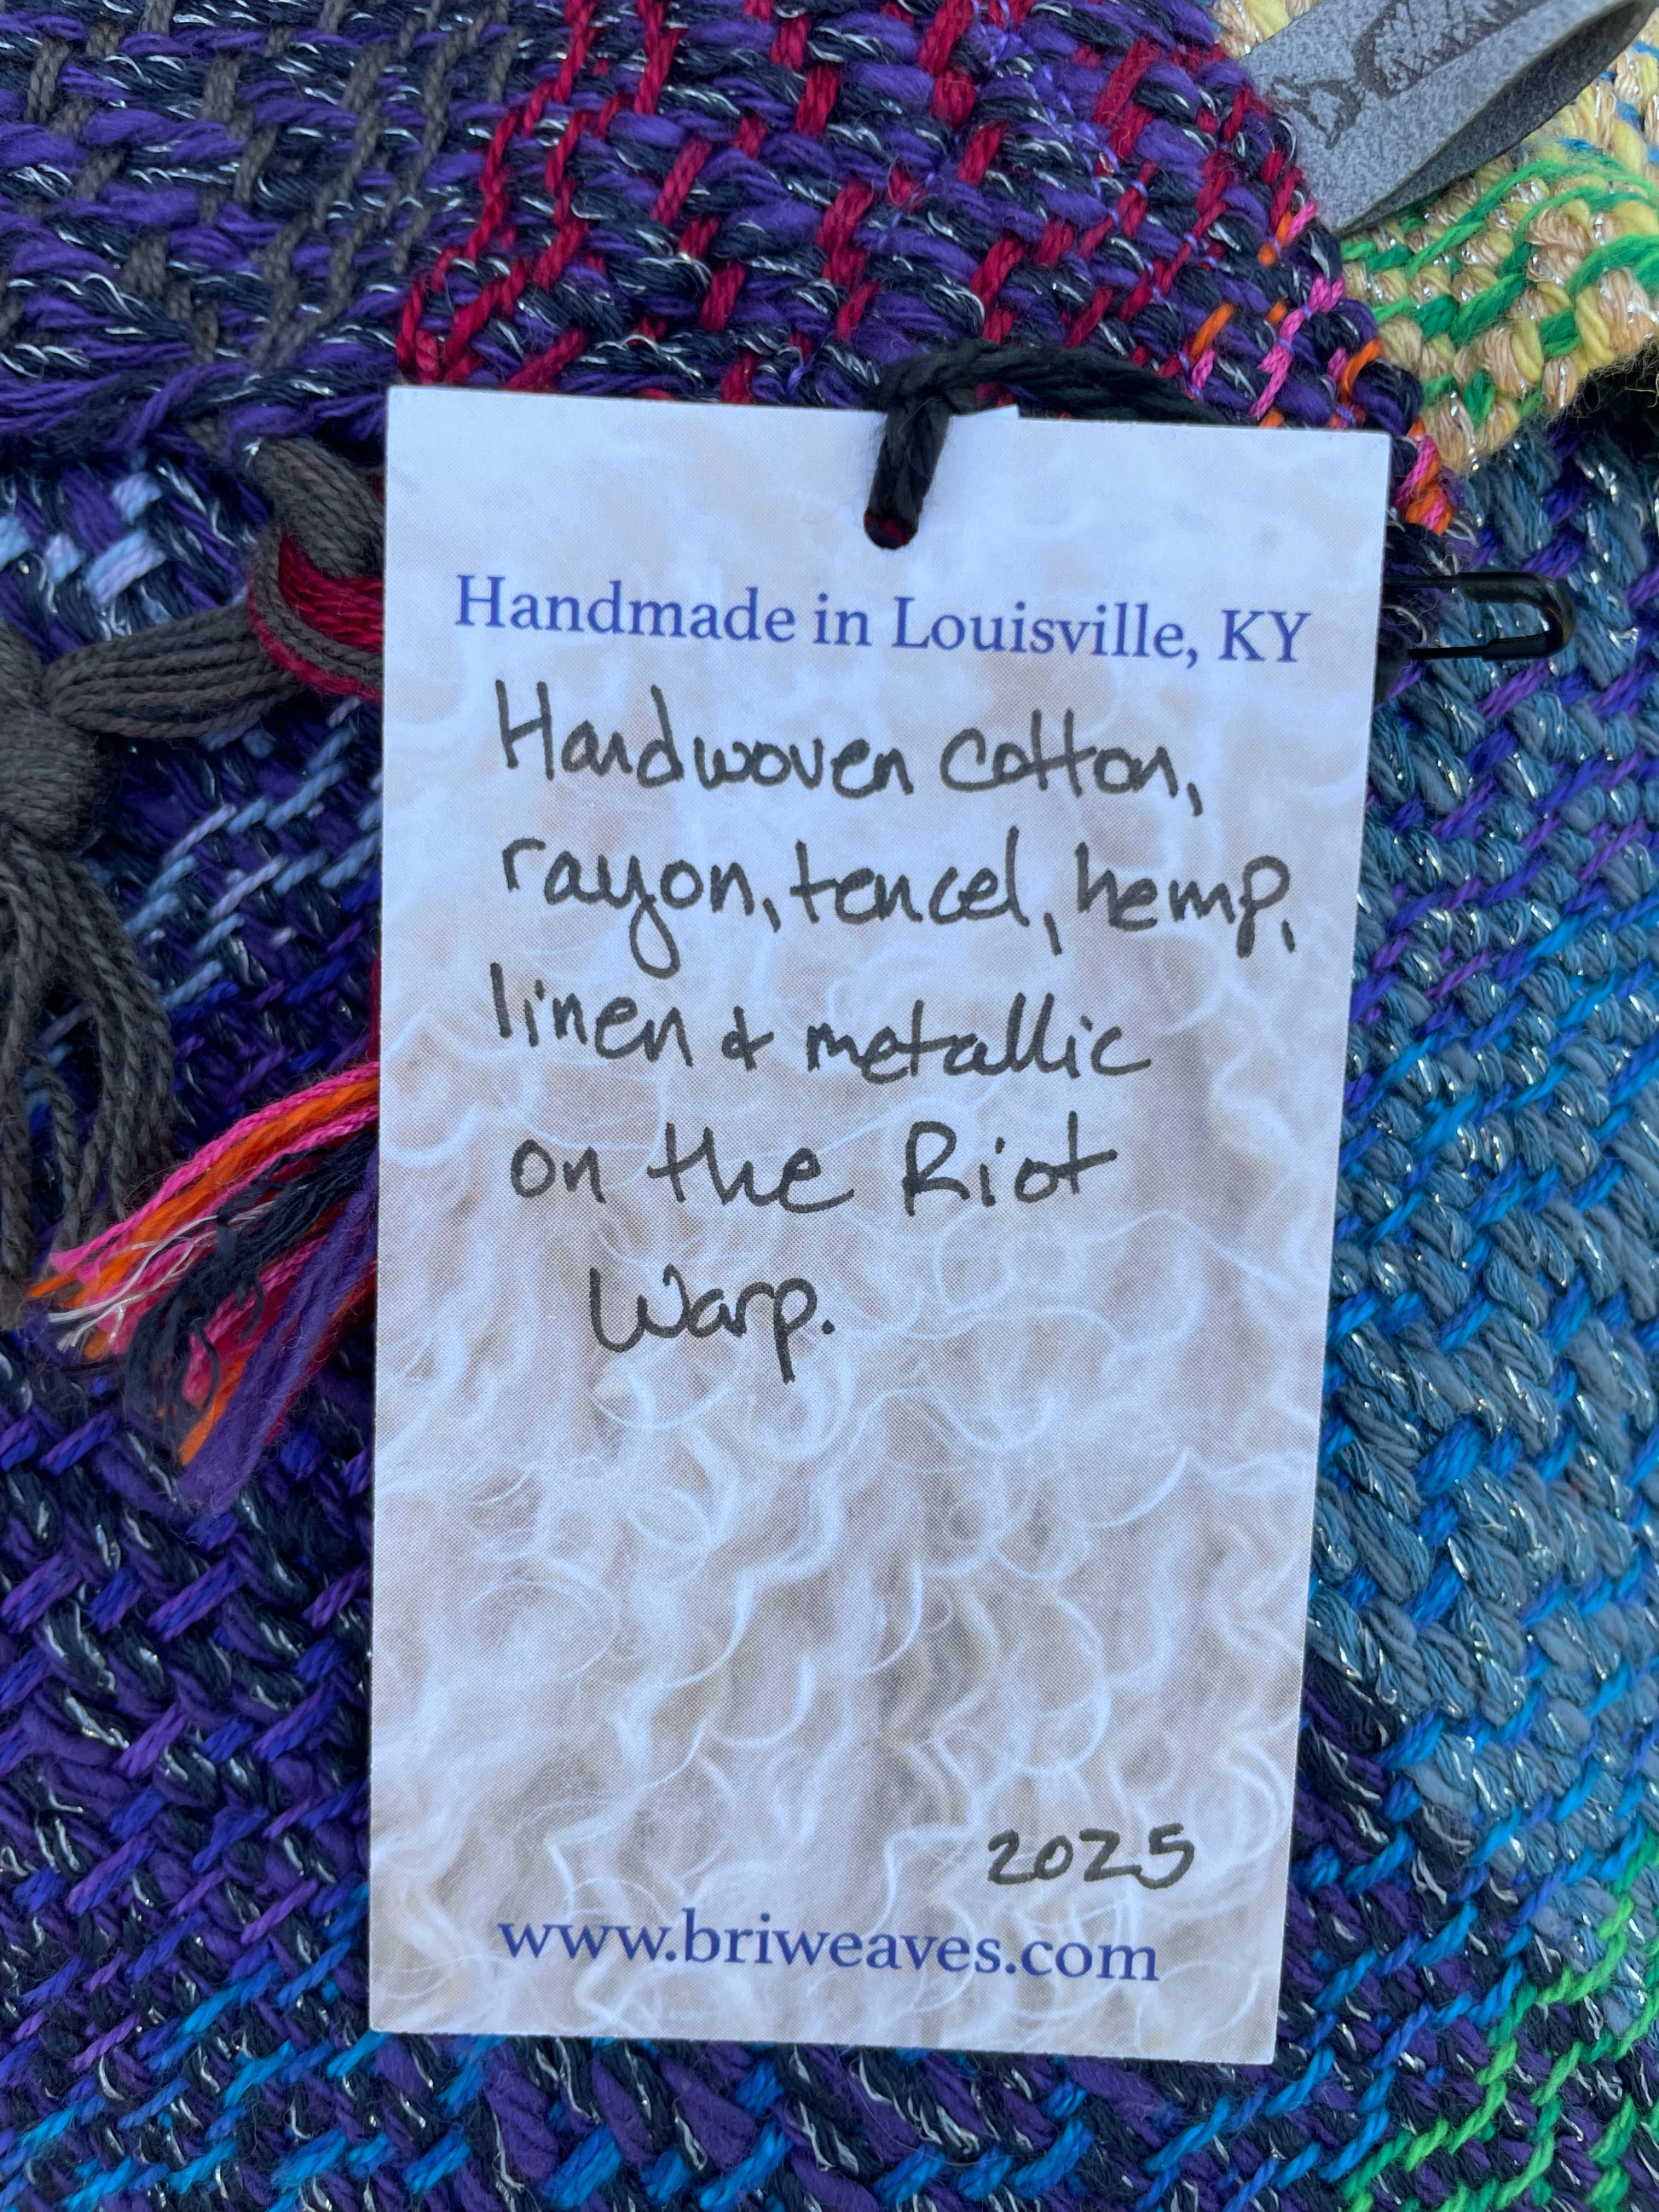 Handmade in Louisville, KY
Handwoven cotton,
rayon, tencel, hemp,
linen & metallic
on the Riot
Warp.
2025
www.briweaves.com